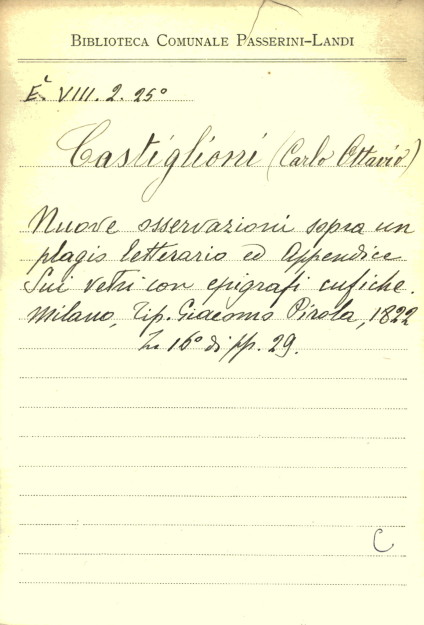 BIBLIOTECA COMUNALE PASSERINI-LANDI
E VIII. 2. 25°
Castiglioni (Carlo Ottavio)
Nuove osservazioni sopra un
plagio letterario ed Appendice
Sui vetri con epigrafi cufiche.
Milano, Tip. Giacomo Pirola, 1822
In 16° di pp. 29.
C